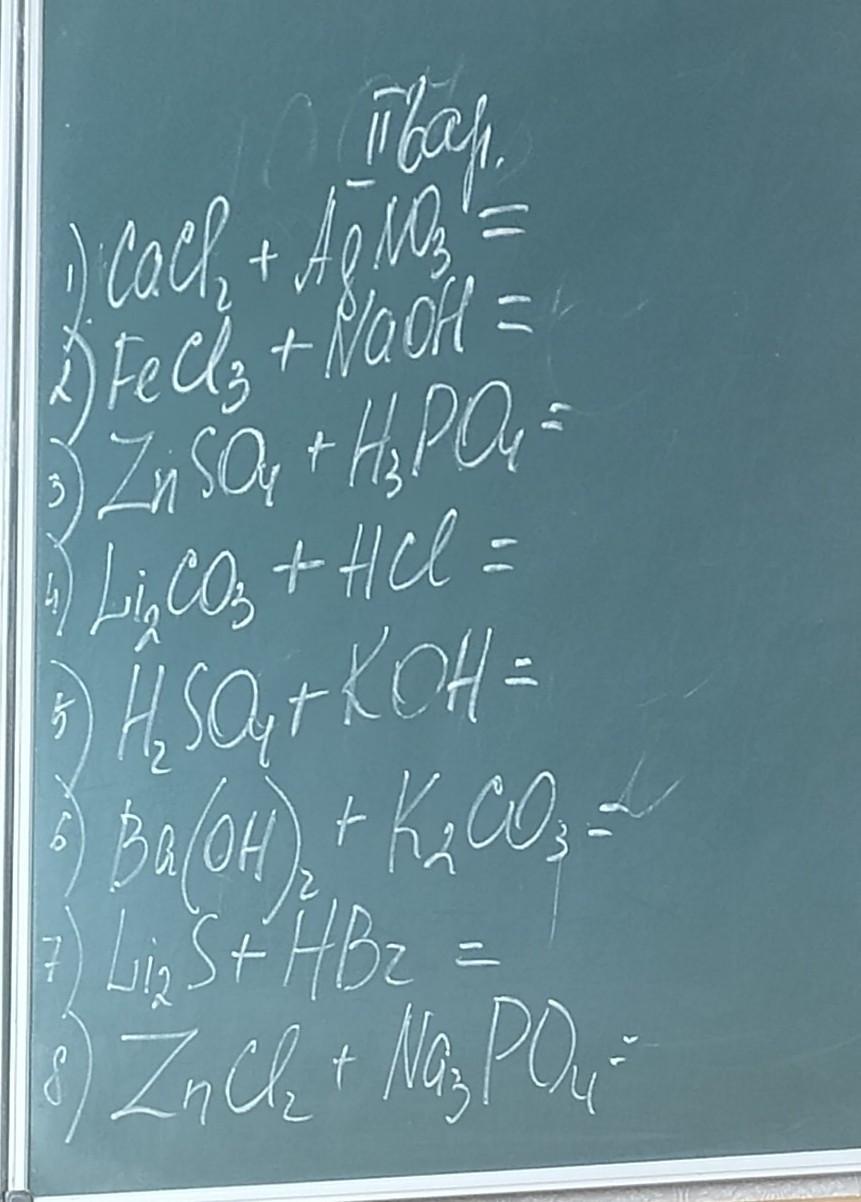 II вар.
1) CaCl₂ + AgNO₃ =
2) FeCl₃ + NaOH =
3) ZnSO₄ + H₃PO₄ =
4) Li₂CO₃ + HCl =
5) H₂SO₄ + KOH =
6) Ba(OH)₂ + K₂CO₃ =
7) Li₂S + HBr =
8) ZnCl₂ + Na₃PO₄ =